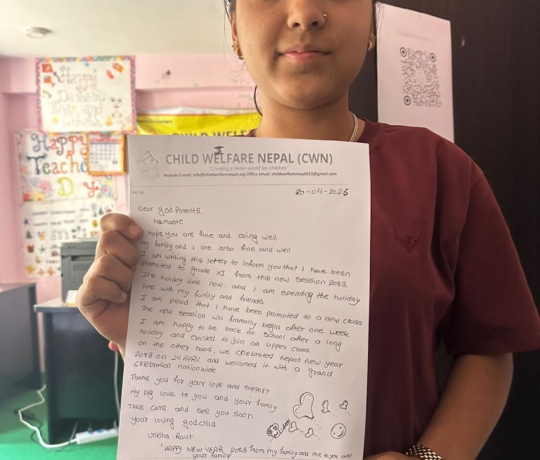 CHILD WELFARE NEPAL (CWN)
20-04-2026
Dear god Parents,
Namaste
I hope you are fine and doing well
My family and I are also fine and well
I am writing this letter to inform you that I have been
promoted to grade XI from this new session 2083.
It's holiday time now. and I am spending the holiday
time with my family and friends
I am proud that I have been promoted to a new class
The new session will formally begin after one week
I am happy to be back at school after a long
holiday and excited to join an upper class
on the other hand, we celebrated Nepali new year
2083 on 14 April and welcomed it with a grand
celebration nationwide
Thank you for your love and support
My big love to you and your family
Take care and see you soon
your loving godchild
Raut
"HAPPY NEW YEAR 2083 from my family and me to you and
your family
Happy
Teache
D y
CHILD WELF